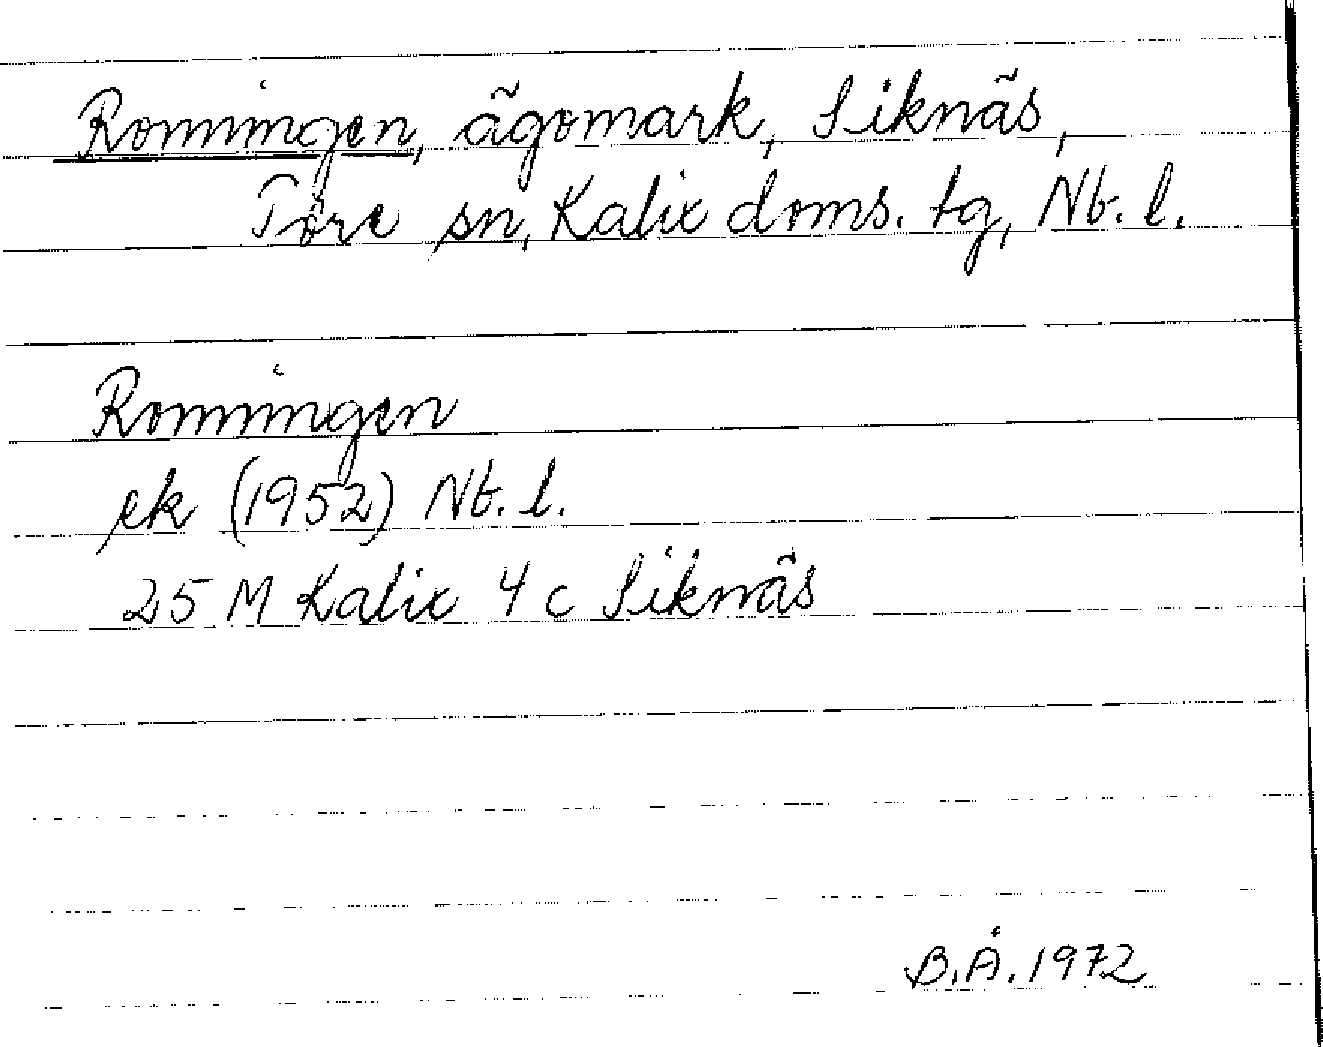 Ronningen, ägomark, Siknäs,
Töre sn, Kalix doms. tg, Nb. l.
Ronningen
ek (1952) Nb. l.
25 M Kalix 4 c Siknäs
B.Å. 1972